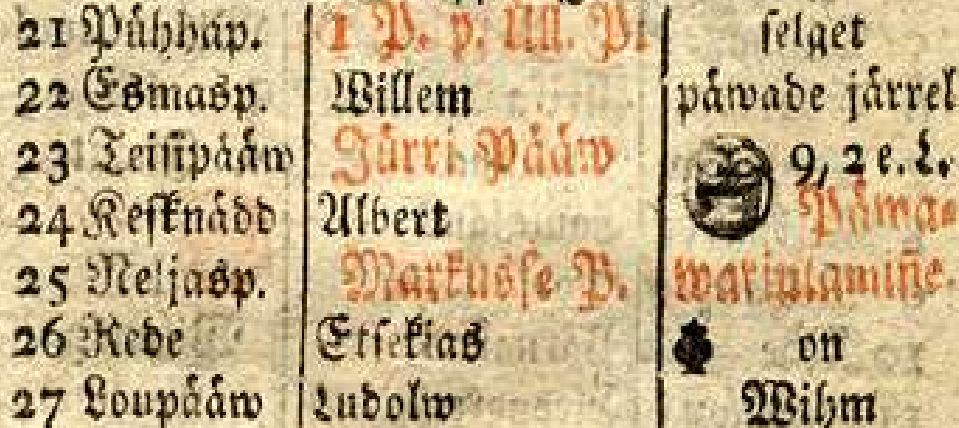 21 Pühhap. 1 P. p. Ül. P. selget
22 Esmasp. Willem päwade järrel
23 Teisipääw Jürri Pääw 9, 2 e. L.
24 Kesknädd Albert Päwa-
25 Neljasp. Markusse P. warjutamiñe.
26 Rede Etsekias on
27 Loupääw Ludolw Wihm